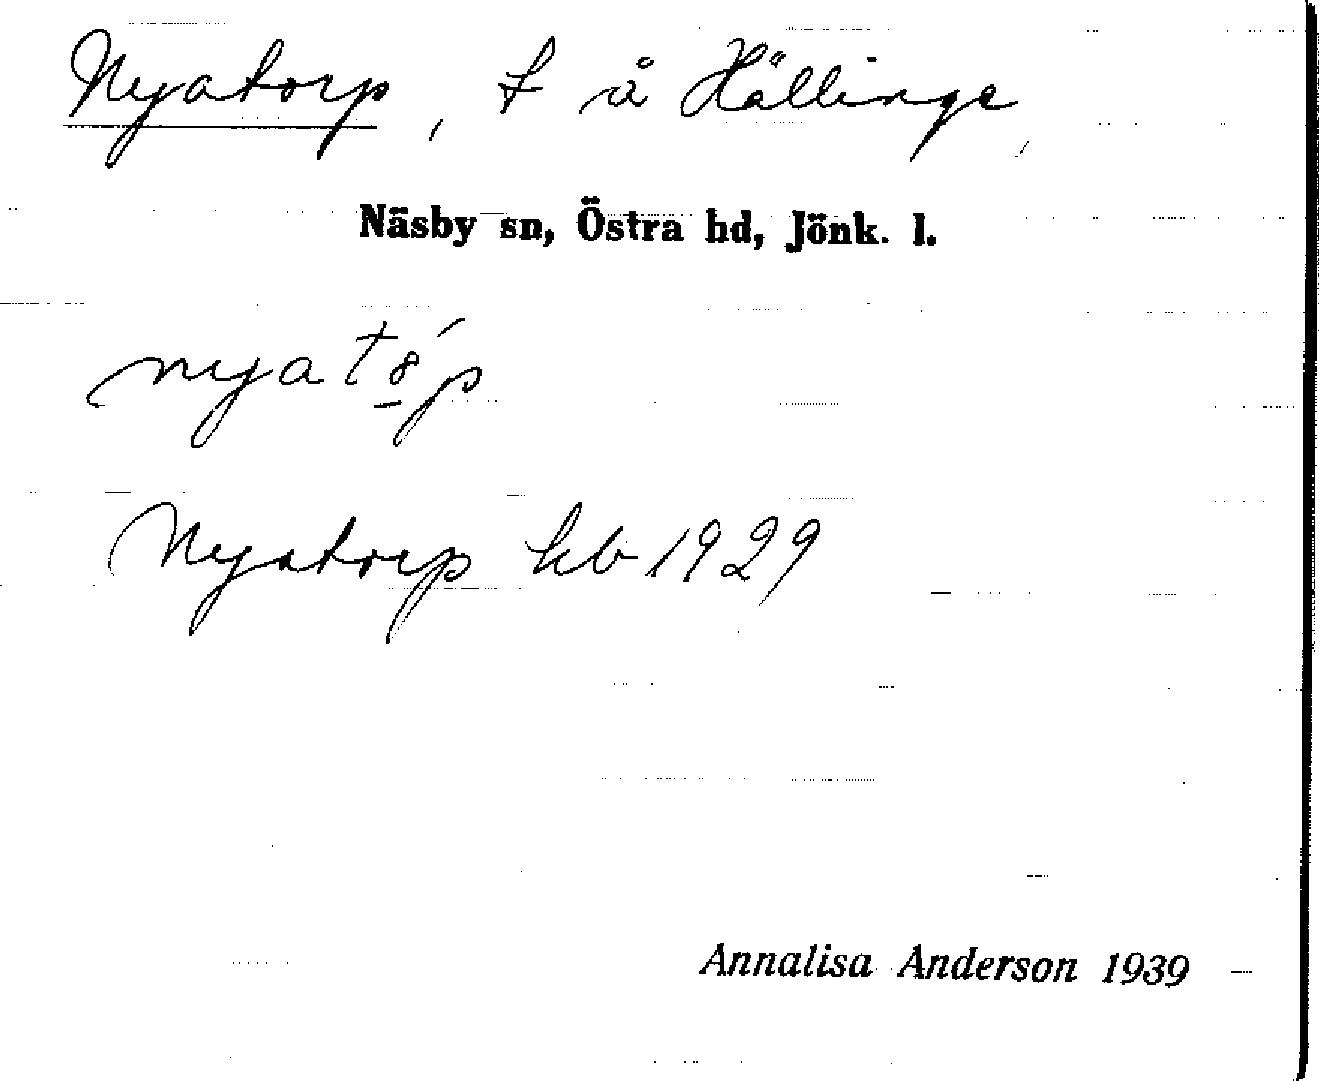 Nyatorp, t å Hällinge,
Näsby sn, Östra hd, Jönk. l.
nyat8́p
Nyatorp kb 1929
Annalisa Anderson 1939